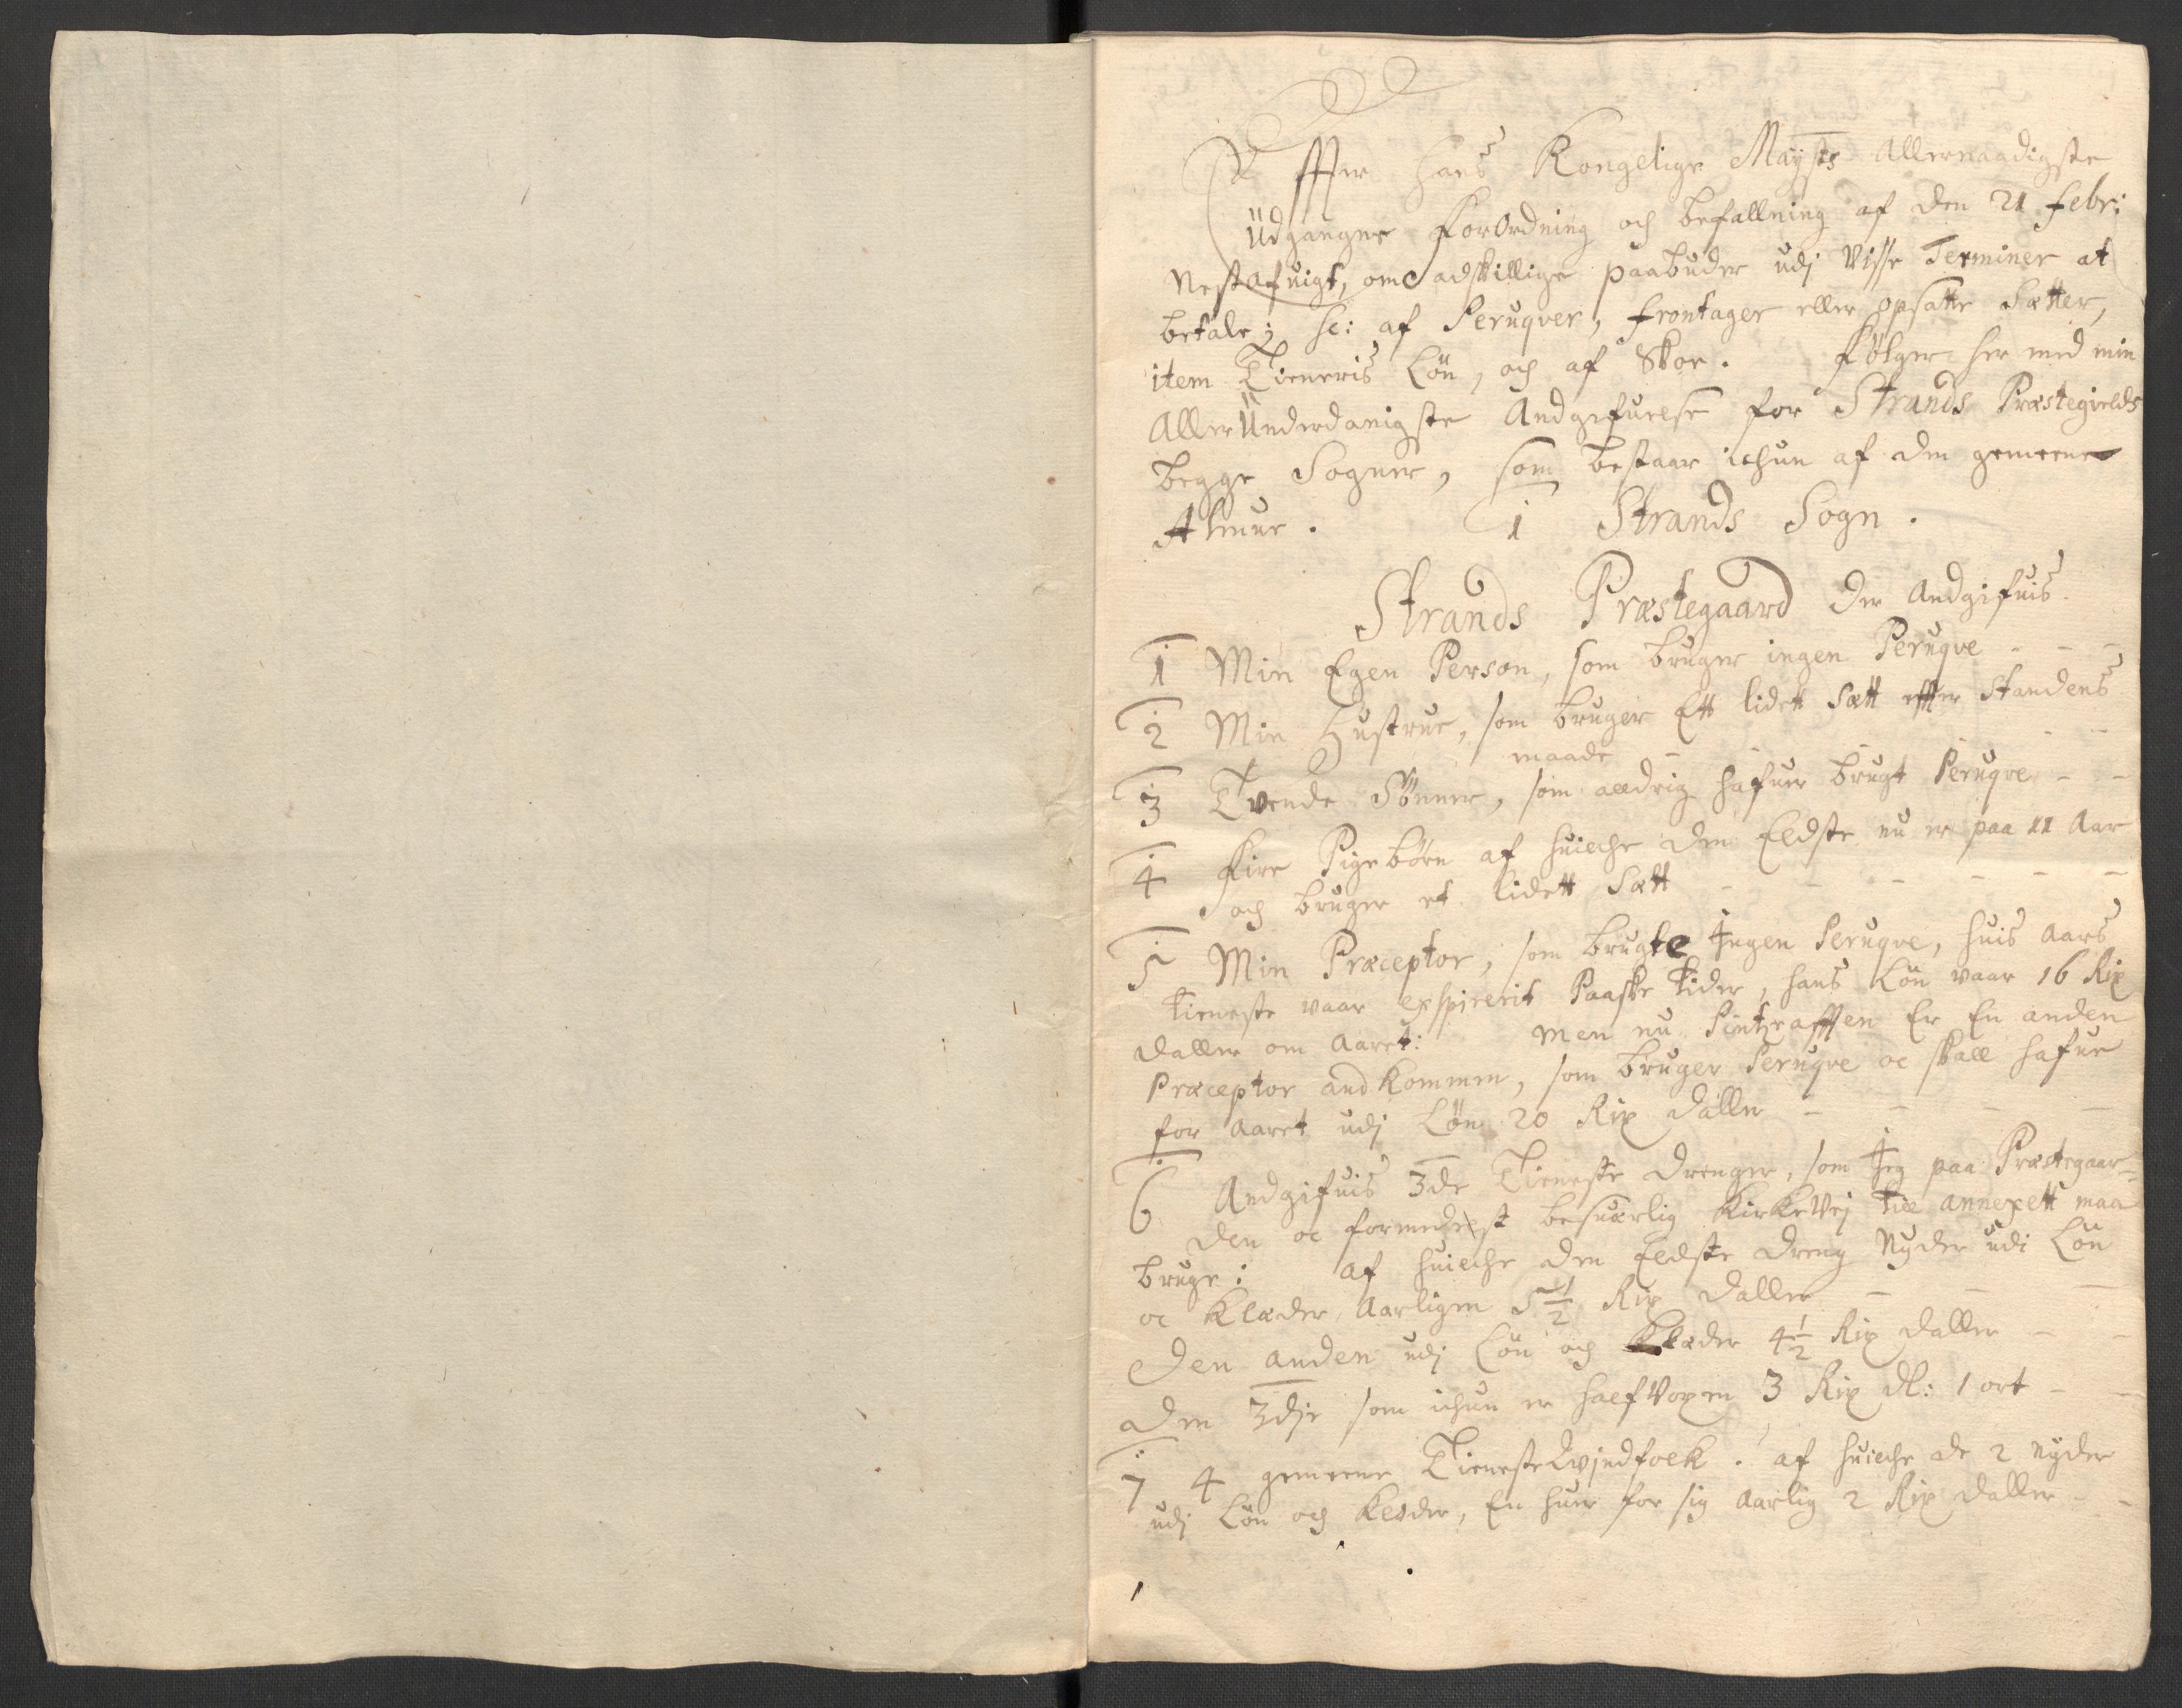 Effter Hans Kongelige Mayts Allernaadigste
Udgangne ForOrdning och befallning af den 21 Febr:
Nestafuigt, om adskillige paabuder udj Visse Terminer at
betale; sc: af Peruqver, frontager eller opsatte Sætter,
item Tieneris Løn, och af Skoe. Følger her med min
AllerUnderdanigste Andgifuelse for Strands Præstegields
begge Sogner, som bestaar ichun af den gemeene
Almue. 1 Strands Sogn.
Strands Præstegaard der Andgifuis.
1 Min Egen Person, som bruger ingen Peruqve - - -
2 Min Hustrue, som bruger Ett lidet Sætt effter Standens
maade - - -
3 Tvende Sønner, som alldrig hafuer brugt Peruqve - -
4 Fire Pigebørn af huilche den Eldste nu er paa 11 Aar
och bruger et lidett Sætt - - - - - -
5 Min Præceptor, som brugte Ingen Peruqve, huis Aars
tieneste vaar exspirerit Paaske tider, hans Løn vaar 16 Rix
daller om Aaret: Men nu Pintzafften Er En anden
Præceptor andkommen, som bruger Peruqve oc skall hafue
for Aaret udj Løn 20 Rix daller - - - -
6 Andgifuis 3de Tieneste drenger, som Jeg paa Præstegaar=
den oc formedelst besuærlig KirkeVej till annexett maa
bruge: af huilche den Eldste dreng Nyder udi Løn
oc Klæder Aarligen 5½ Rix daller - - -
Den anden udj Løn och Klæder 4½ Rix daller - -
Den 3die som ichun er halfVoxen 3 Rix dl: 1 ort - -
7 4 gemeene TienesteQvindfolk. af huilche de 2 nyder
udj Løn och Kleder, En huer for sig Aarlig 2 Rix daller - -